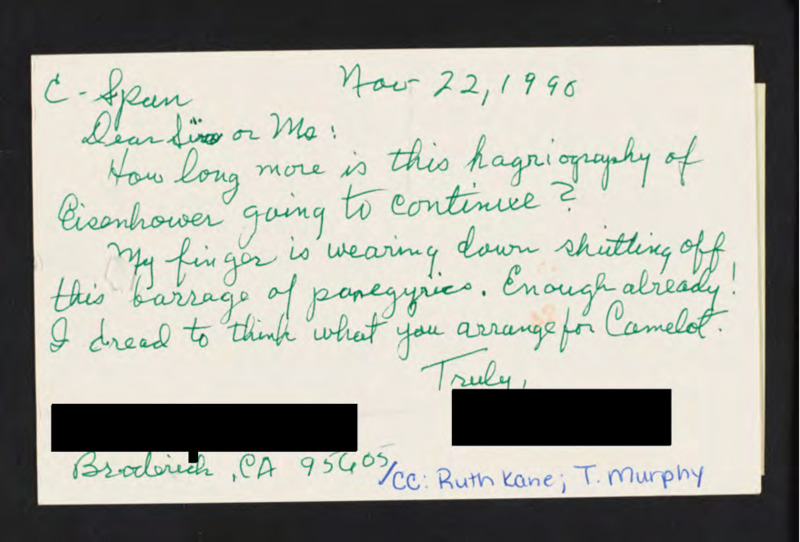 C-Span
Nov 22, 1990
Dear Sir or Ms:
How long more is this hagriography of
Eisenhower going to continue?
My finger is wearing down shutting off
this barrage of panegyrics. Enough already!
I dread to think what you arrange for Camelot.
Truly,
Broderick, CA 95605
/CC: Ruth Kane; T. Murphy